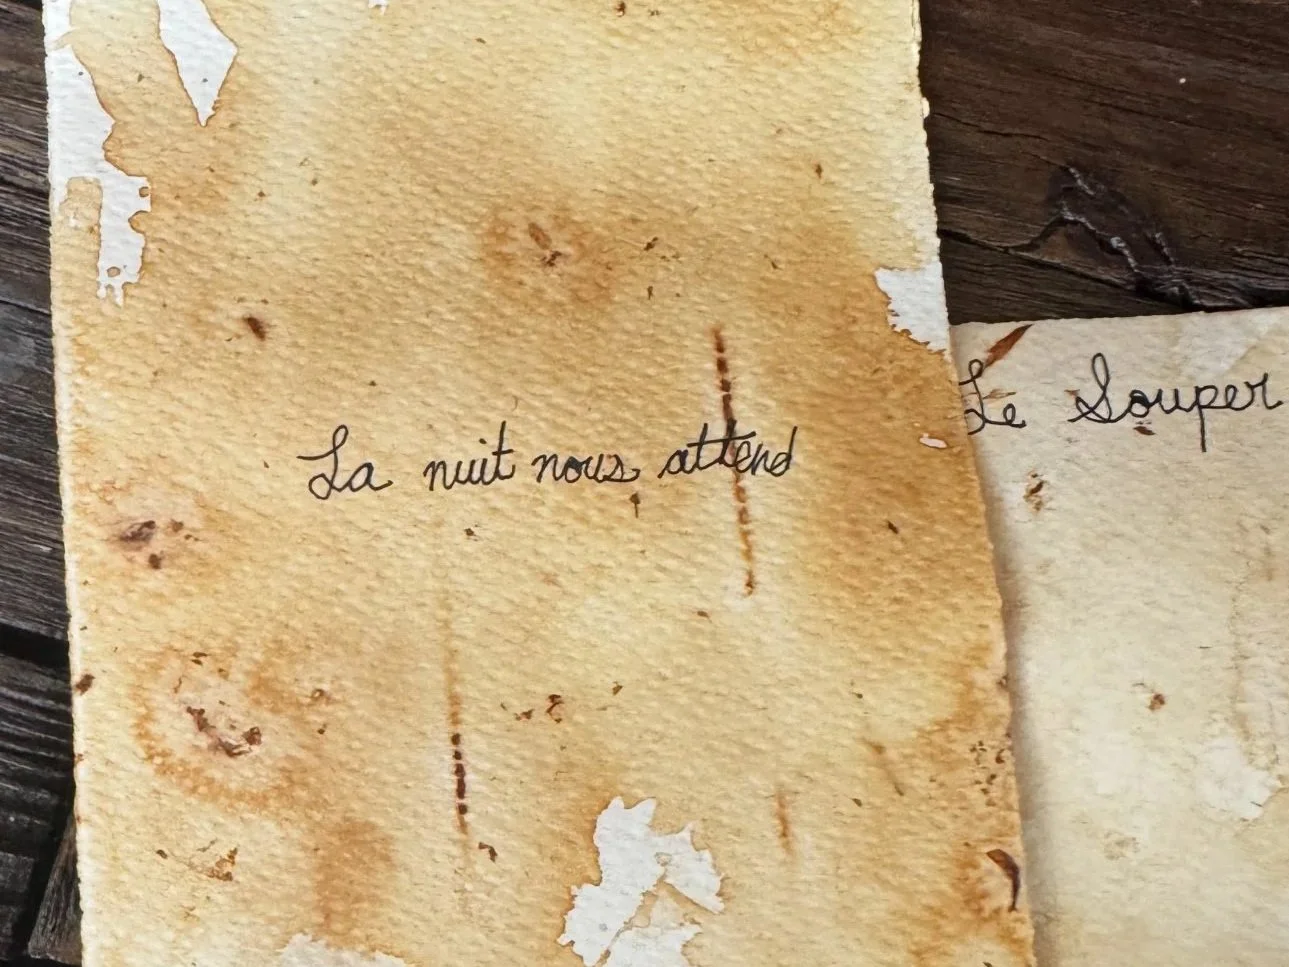 La nuit nous attend
Le Souper